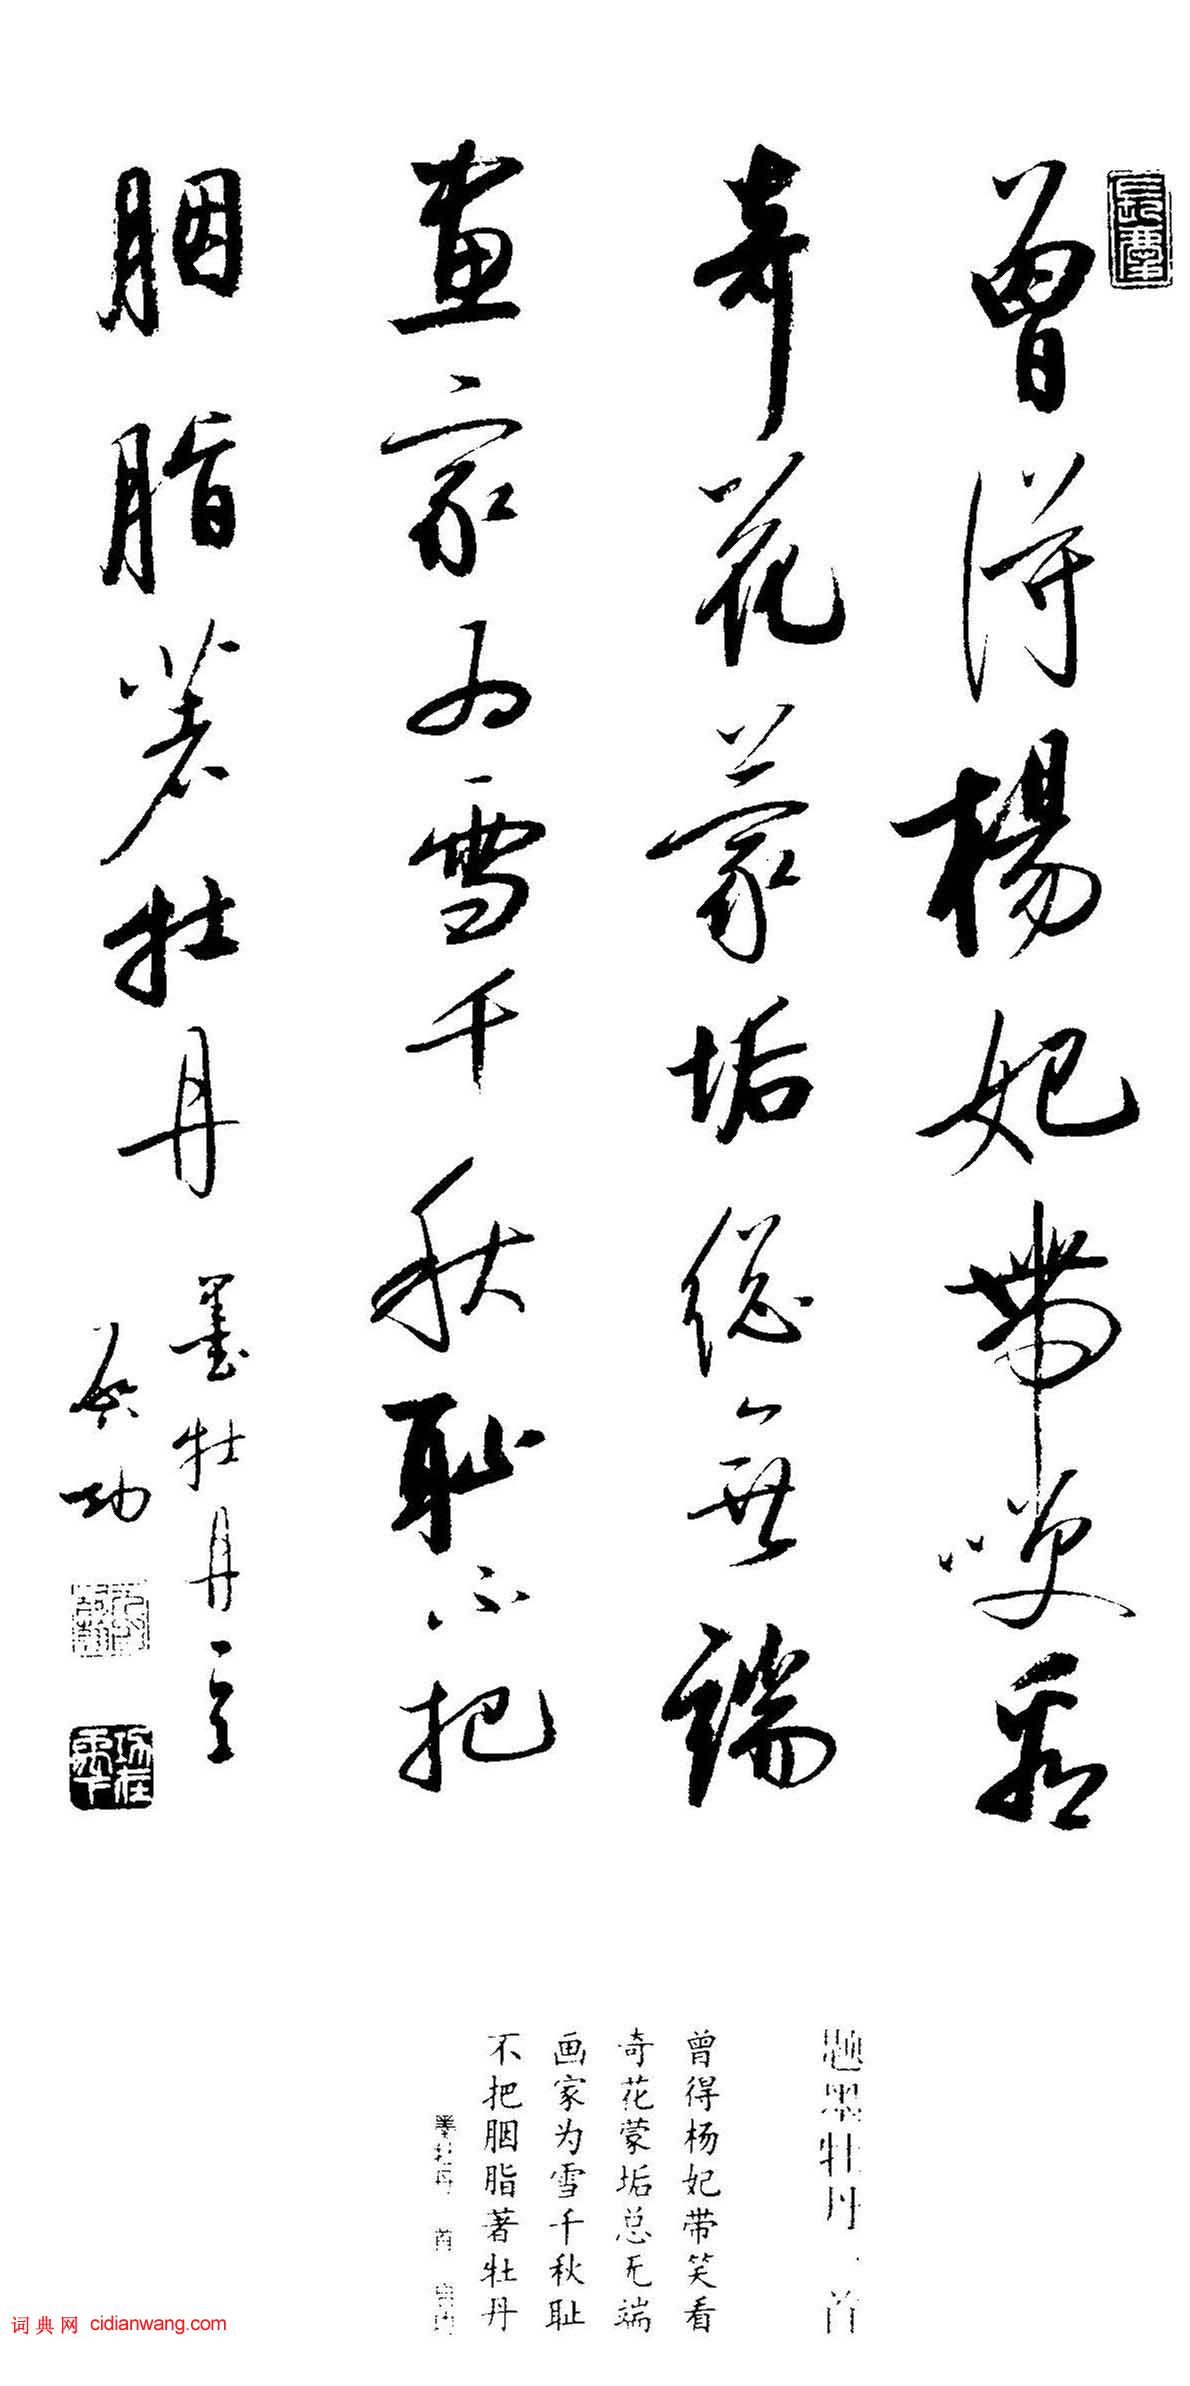 曾得楊妃帶笑看
奇花蒙垢總無端
畫家为雪千秋耻不把
胭脂著牡丹
墨牡丹一首
启功
题墨牡丹一首
曾得杨妃带笑看
奇花蒙垢总无端
画家为雪千秋耻
不把胭脂著牡丹
墨牡丹一首 启功
词典网 cidianwang.com